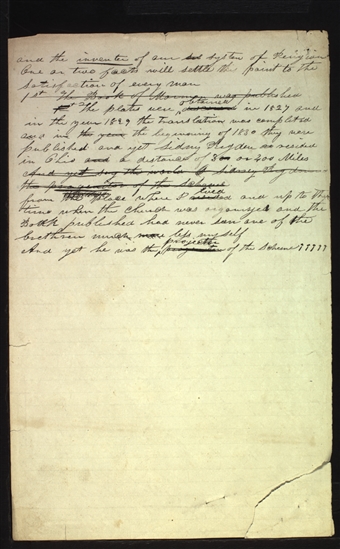 and the inventor of our system of Religion
One or two facts will settle the point to the
satisfaction of every man
1st The Book of Mormon was published
1st The plates were obtained in 1827 and
in the year 1829 the translation was completed
and in the year the beginning of 1830 they were
published and yet Sidney Rigdon resided
in Ohio and a distance of 300 or 400 Miles
And yet say the world
the of the Scheme
from the place where I resided and up to the
time when the Church was organised and the
Book published had never seen one of the
brethren much more less myself
And yet he was the projector of the Scheme ? ? ? ? ?